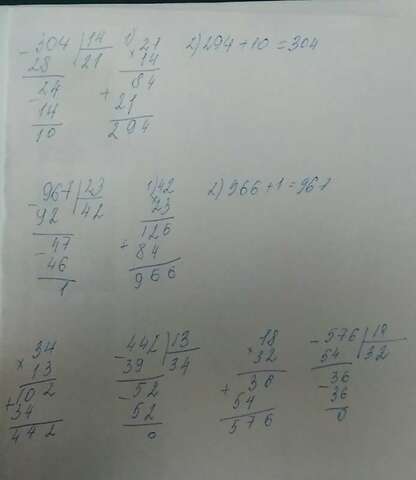 304 | 14   1) 21   2) 294 + 10 = 304
- 28 | 21   × 14
24   84
- 14   + 21
10   294
967 | 23   1) 42   2) 966 + 1 = 967
- 92 | 42   × 23
47   126
- 46   + 84
1   966
34   - 442 | 13   18   - 576 | 18
× 13   39 | 34   × 32   54 | 32
102   - 52   36   - 36
+ 34   52   + 54   36
442   0   576   0